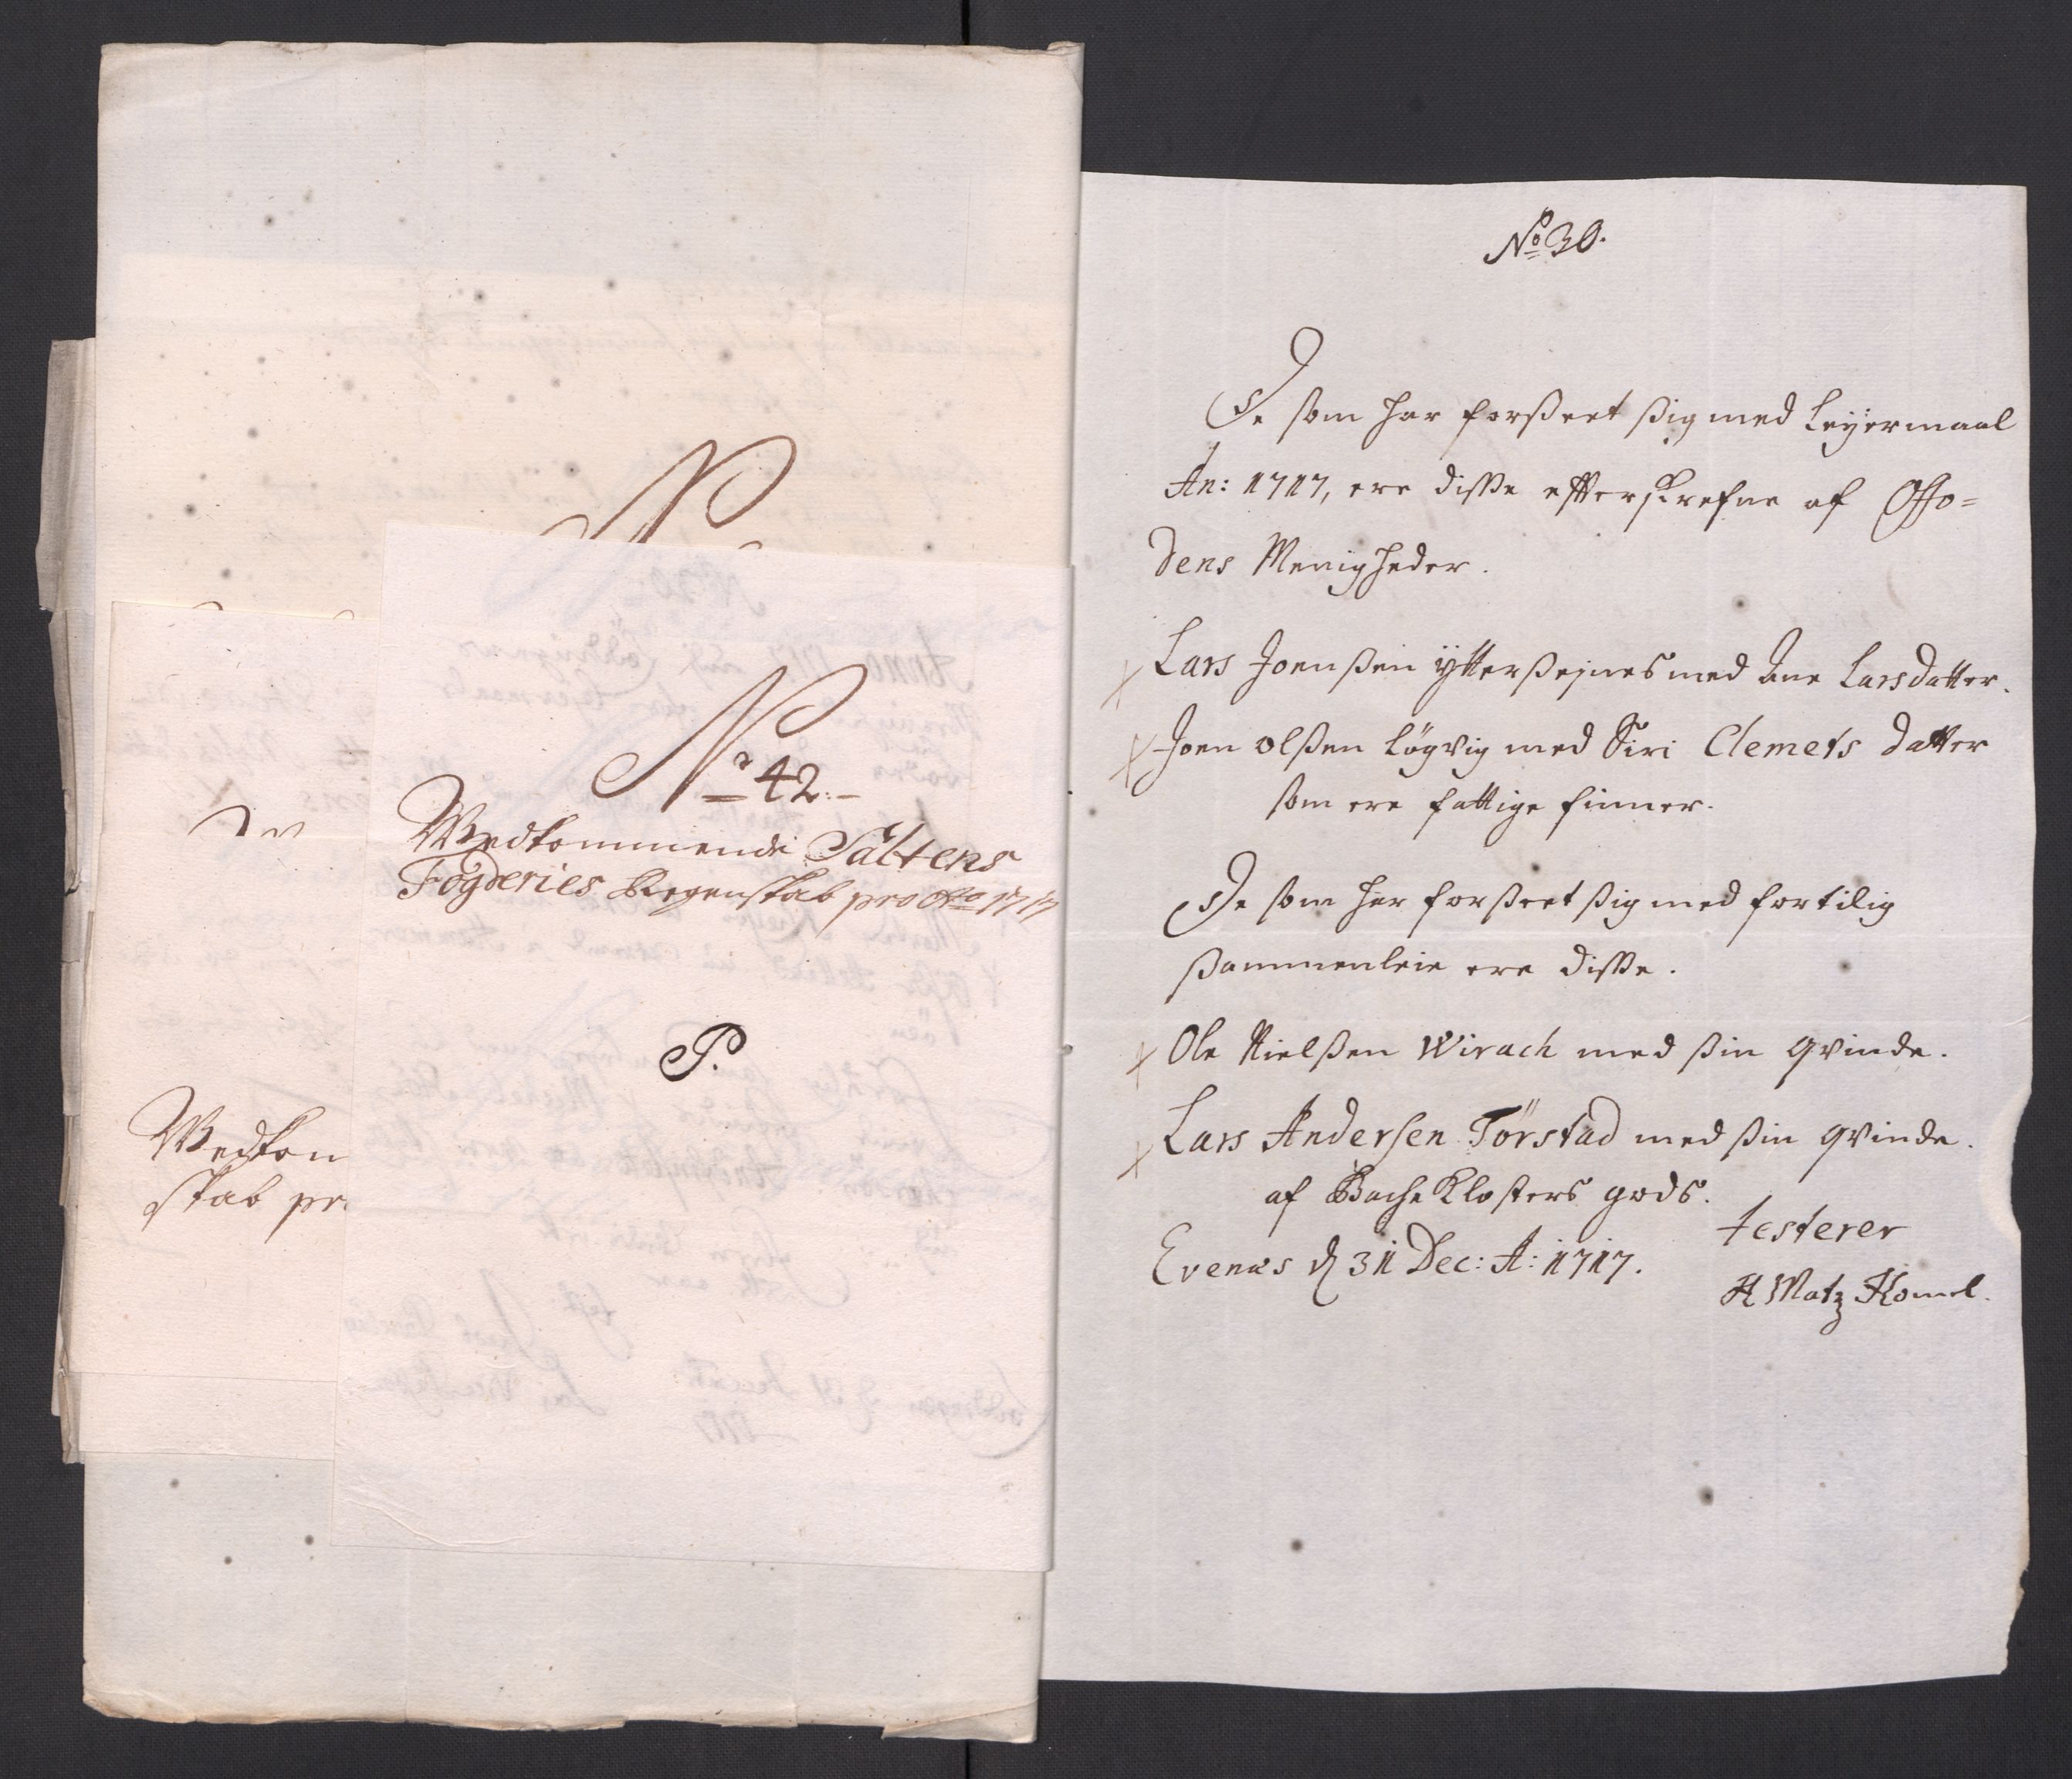 No 42.
Wedkommende Saltens
Fogderies Regenskab pro Ao 1717
P.
Wedkom
skab pr
No 30.
De som har forßeet ßig med Leyermaal
An: 1717, ere disse efterskrefne af Offo=
dens Menigheder.
Lars Joenßen ytterßejnes med Ane Larsdatter.
Joen Olßen Løgvig med Siri Clemets datter
som ere fattige finner.
De som har forßeet ßig med fortilig
ßammenleie ere disse.
Ole Nielßen Wirach med ßin qvinde.
Lars Andersen Tørstad med ßin qvinde.
af Bache Klosters gods.
testerer
Evenæs d 31 Dec: A: 1717.
H Matz Homel.